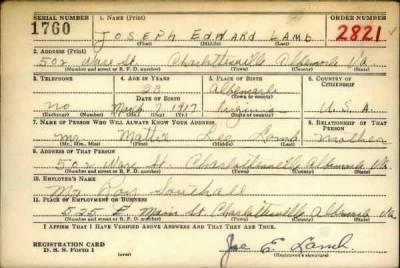 SERIAL NUMBER 1. NAME (Print) ORDER NUMBER
1760 JOSEPH EDWARD LAMB 2821
(First) (Middle) (Last)
2. ADDRESS (Print)
502 Ware St. Charlottesville Albemarle Va.
(Number and street or R. F. D. number) (Town) (County) (State)
3. TELEPHONE 4. AGE IN YEARS 5. PLACE OF BIRTH 6. COUNTRY OF CITIZENSHIP
23 Albemarle
DATE OF BIRTH (Town or county)
no 1917 Virginia U. S. A.
(Exchange) (Number) (Mo.) (Day) (Yr.) (State or country)
7. NAME OF PERSON WHO WILL ALWAYS KNOW YOUR ADDRESS 8. RELATIONSHIP OF THAT PERSON
Mattie Lee Lamb Mother
(Mr., Mrs., Miss) (First) (Middle) (Last)
9. ADDRESS OF THAT PERSON
502 Ware St. Charlottesville Albemarle Va.
(Number and street or R. F. D. number) (Town) (County) (State)
10. EMPLOYER'S NAME
Mr. Southall
11. PLACE OF EMPLOYMENT OR BUSINESS
E Main St. Charlottesville Albemarle Va.
(Number and street or R. F. D. number) (Town) (County) (State)
I AFFIRM THAT I HAVE VERIFIED ABOVE ANSWERS AND THAT THEY ARE TRUE.
REGISTRATION CARD
D. S. S. Form 1
Joe E. Lamb
(Registrant's signature)